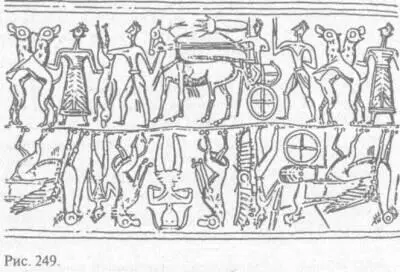 Рис. 249.